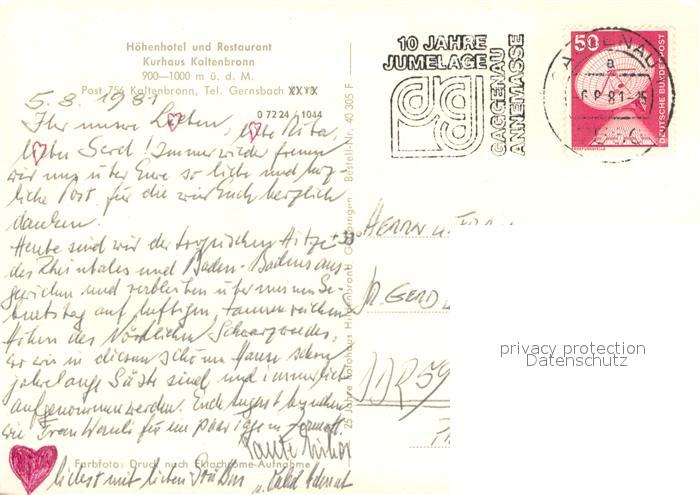 Höhenhotel und Restaurant
Kurhaus Kaltenbronn
900—1000 m ü. d. M.
Post 756 Kaltenbronn, Tel. Gernsbach XXXX
0 72 24 / 1044
5. 8. 1981
Ihr unsere Lieben, liebe
lieber Gerd! Immer wieder freuen
wir uns über Eure so liebe und herz-
liche Post, für die wir Euch herzlich
danken.
Heute sind wir der tropischen Hitze
des Rheintales und Baden-Badens aus-
gewichen und verbleiben über meinen Ge-
burtstag auf luftigen, tannenreichen
Höhen des Nördlichen Schwarzwaldes,
wo wir in diesem schönen Hause schon
jahrelange Gäste sind und immer lieb
aufgenommen werden. Ende August
wir Frau für ein paar Tage in
Tante
liebst mit lieben Grüßen
u.
Farbfoto: Druck nach Ektachrome-Aufnahme
25 Jahre Fotohaus Hildenbrand Göppingen Bestell-Nr. 40 305 F
10 JAHRE
JUMELAGE
GAGGENAU
ANNEMASSE
GAGGENAU
a
-6.8.81-15
7560
50
DEUTSCHE BUNDESPOST
HERRN u.
Dr. GERD
DDR 59
privacy protection
Datenschutz